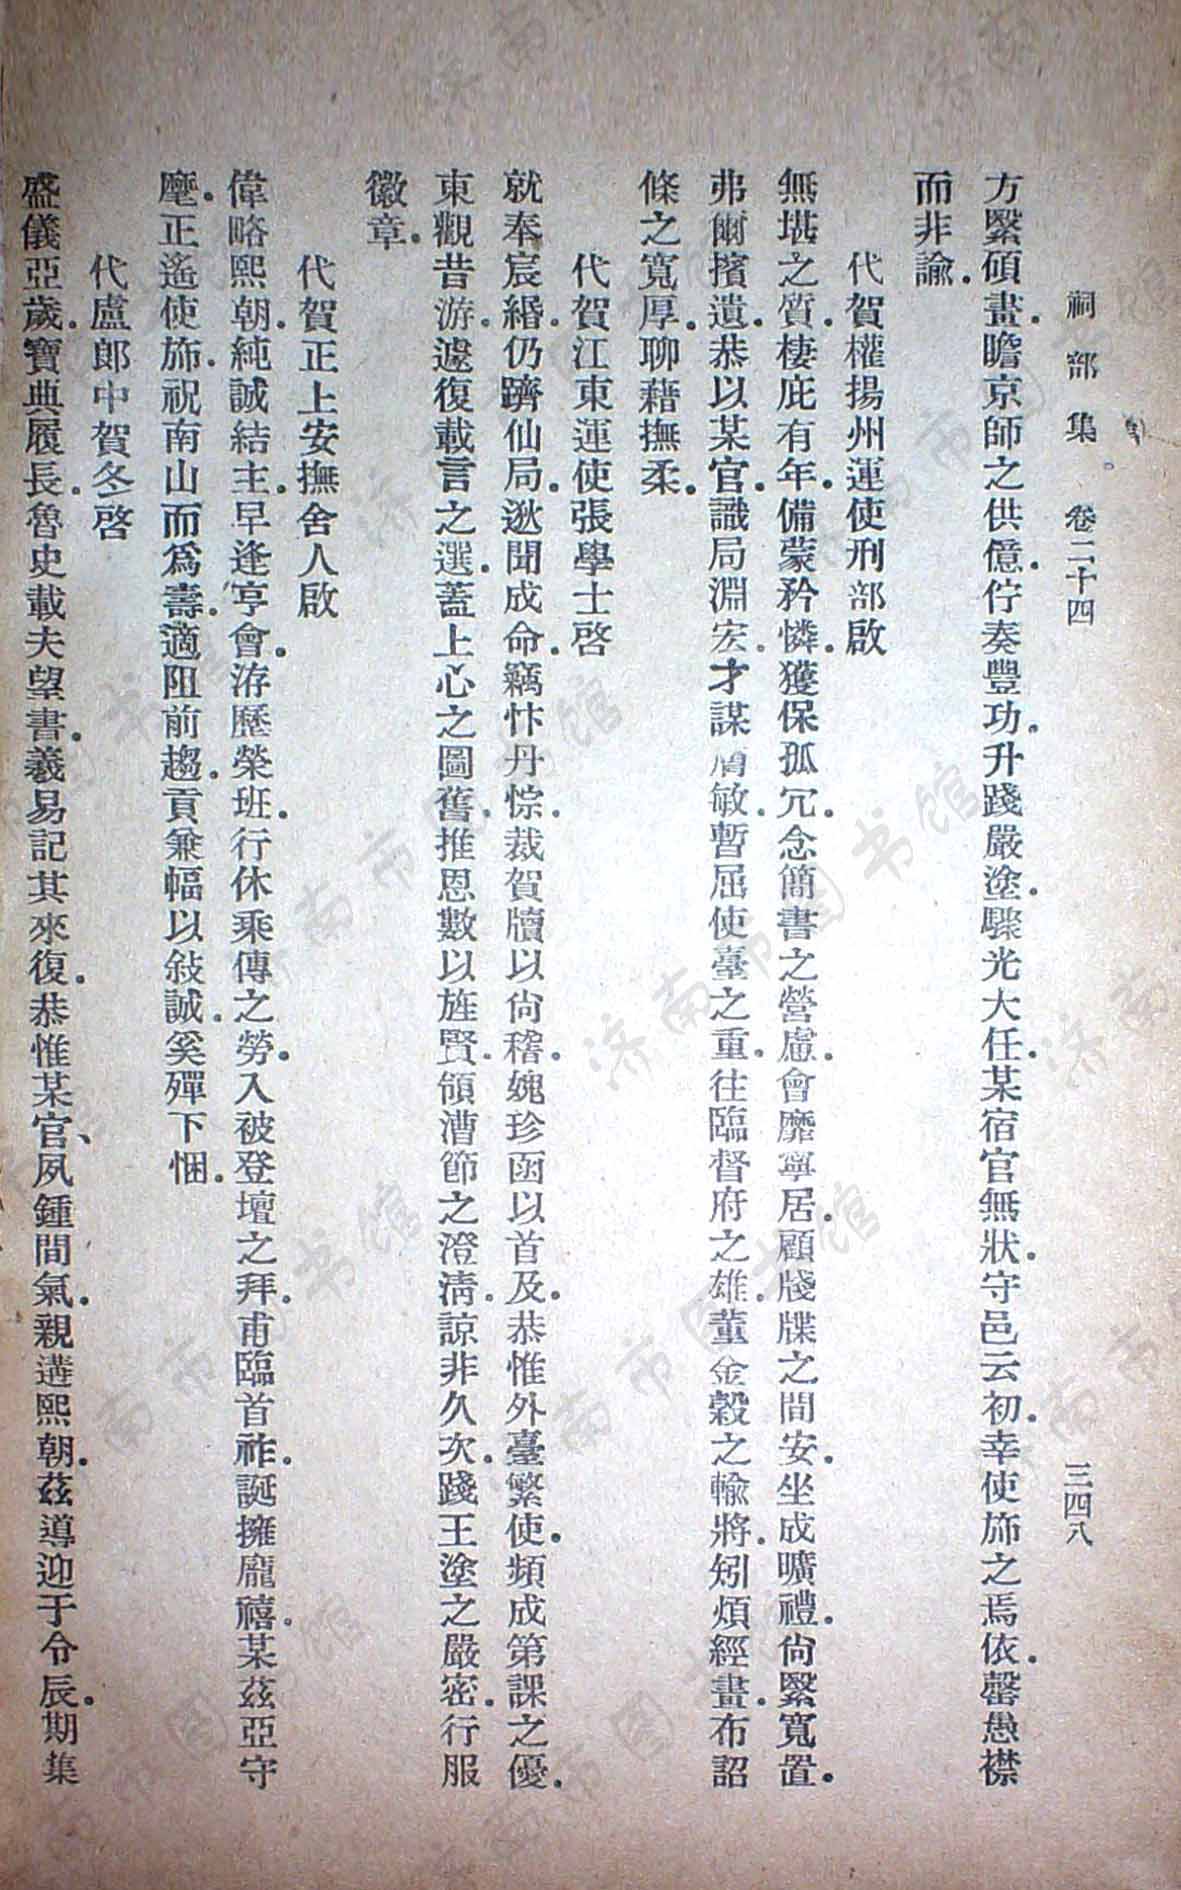 祠部集 卷二十四 三四八
方緊碩畫。瞻京師之供億。佇奏豐功。升踐嚴塗。驟光大任。某宿官無狀。守邑云初。幸使斾之焉依。罄愚襟
而非諭。
代賀權揚州運使刑部啟
無堪之質。棲庇有年。備蒙矜憐。獲保孤冗。念簡書之營慮。會靡寧居。顧牋牒之間安。坐成曠禮。尙緊寬置。
弗爾擯遺。恭以某官。識局淵宏。才謀膚敏。暫屈使臺之重。往臨督府之雄。董金穀之輸將。矧煩經畫。布詔
條之寬厚。聊藉撫柔。
代賀江東運使張學士啓
就奉宸綍。仍躋仙局。逖聞成命。竊忭丹悰。裁賀牘以尙稽。媿珍函以首及。恭惟外臺繁使。頻成第課之優。
東觀昔游。遽復載言之選。蓋上心之圖舊。推恩數以旌賢。領漕節之澄淸。諒非久次。踐王塗之嚴密。行服
徽章。
代賀正上安撫舍人啟
偉略熙朝。純誠結主。早逢亨會。洊歷榮班。行休乘傳之勞。入被登壇之拜。甫臨首祚。誕擁龐禧。某茲亞守
麾。正遙使斾。祝南山而爲壽。適阻前趨。貢兼幅以敍誠。奚殫下悃。
代盧郎中賀冬啓
盛儀亞歲。寶典履長。魯史載夫望書。羲易記其來復。恭惟某官、夙鍾間氣。親遘熙朝。茲導迎于令辰。期集